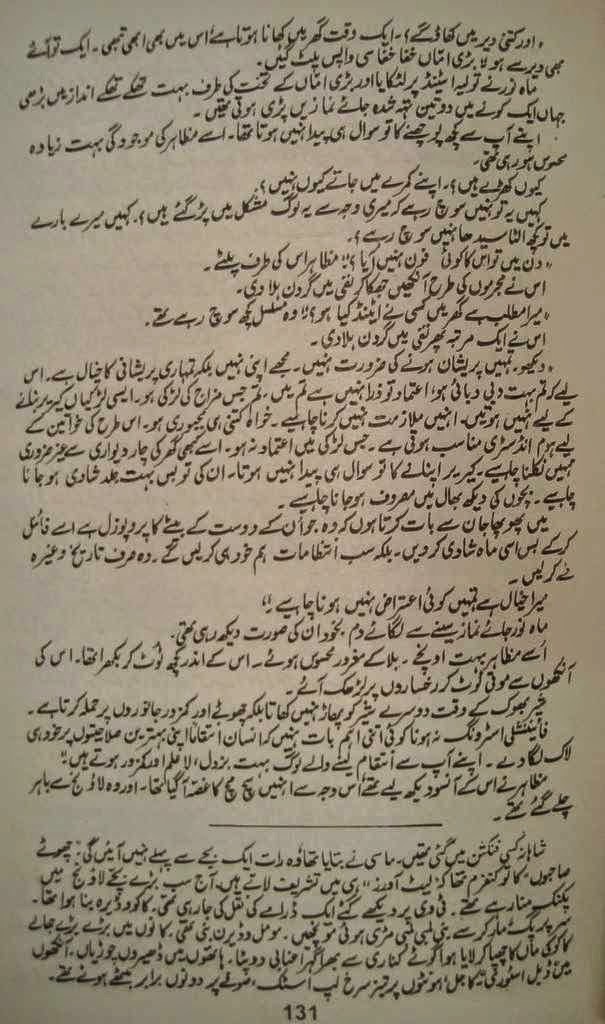 "اور کتنی دیر میں کھاؤ گے؟۔ ایک وقت گھر میں کھانا ہوتا ہے اُس میں بھی ابھی تبھی۔ ایک تو آئے
بھی دیر سے ہو" بڑی اماں خفا خفا سی واپس پلٹ گئیں۔
ماہ نور نے تولیہ اسٹینڈ پر لٹکایا اور بڑی اماں کے تخت کی طرف بہت تھکے تھکے انداز میں بڑھی
جہاں ایک کونے میں دو تین تہہ شدہ جائے نمازیں پڑی ہوتی تھیں۔
اپنے آپ سے کچھ پوچھنے کا تو سوال ہی پیدا نہیں ہوتا تھا۔ اسے مظاہر کی موجودگی بہت زیادہ
محسوس ہو رہی تھی۔
کیوں کھڑے ہیں؟۔ اپنے کمرے میں جاتے کیوں نہیں؟
کہیں یہ تو نہیں سوچ رہے کہ میری وجہ سے یہ لوگ مشکل میں پڑ گئے ہیں؟ کہیں میرے بارے
میں تو کچھ الٹا سیدھا نہیں سوچ رہے؟۔
"دن میں تو اس کا کوئی فون نہیں آیا؟" مظاہر اس کی طرف پلٹے۔
اس نے مجرموں کی طرح آنکھیں جھکا کر نفی میں گردن ہلا دی۔
"میرا مطلب ہے گھر میں کسی نے اٹینڈ کیا ہو؟" وہ مسلسل کچھ سوچ رہے تھے۔
اس نے ایک مرتبہ پھر نفی میں گردن ہلا دی۔
"دیکھو۔ تمہیں پریشان ہونے کی ضرورت نہیں۔ مجھے اپنی نہیں بلکہ تمہاری پریشانی کا خیال ہے۔ اس
لیے کہ تم بہت دبی دبائی ہو، اعتماد تو ذرا نہیں ہے تم میں۔ تم جس مزاج کی لڑکی ہو۔ ایسی لڑکیاں کیریر بنانے
کے لیے نہیں ہوتیں۔ انہیں ملازمت نہیں کرنا چاہیے۔ خواہ کتنی ہی مجبوری ہو۔ اس طرح کی خواتین کے
لیے ہوم انڈسٹری مناسب ہوتی ہے۔ جس لڑکی میں اعتماد نہ ہو۔ اسے کبھی گھر کی چار دیواری سے غیر ضروری
نہیں نکلنا چاہیے۔ کیریر اپنانے کا تو سوال ہی پیدا نہیں ہوتا۔ ان کی تو بس بہت جلد شادی ہو جانا
چاہیے۔ بچوں کی دیکھ بھال میں مصروف ہو جانا چاہیے۔
میں پھوپھا جان سے بات کرتا ہوں کہ وہ جو اُن کے دوست کے بیٹے کا پروپوزل ہے اسے فائنل
کر کے بس اسی ماہ شادی کر دیں۔ بلکہ سب انتظامات ہم خود ہی کر لیں گے۔ وہ صرف تاریخ وغیرہ
لے کر لیں۔
میرا خیال ہے تمہیں کوئی اعتراض نہیں ہونا چاہیے!"
ماہ نور جائے نماز سینے سے لگائے دم بخود ان کی صورت دیکھ رہی تھی۔
اُسے مظاہر بہت اونچے۔ بلا کے مغرور محسوس ہوئے۔ اس کے اندر کچھ ٹوٹ کر بکھرا تھا۔ اس کی
آنکھوں سے موتی ٹوٹ کر رخساروں پر لڑھک آئے۔
شیر بھوک کے وقت دوسرے شیر کو پھاڑ نہیں کھاتا بلکہ چھوٹے اور کمزور جانوروں پر حملہ کرتا ہے۔
فائینینشلی اسٹرونگ نہ ہونا کوئی اتنی اہم بات نہیں کہ انسان انتقاماً اپنی بہترین صلاحیتوں پر خود ہی
لاک لگا دے۔ اپنے آپ سے انتقام لینے والے لوگ بہت بزدل، لاعلم اور کمزور ہوتے ہیں!"
مظاہر نے اس کے آنسو دیکھ لیے تھے اس وجہ سے انہیں سچ مچ کا غصہ آ گیا تھا۔ اور وہ لاؤنج سے باہر
چلے گئے تھے۔
شاہانہ کسی فنکشن میں گئی تھیں۔ ماسی نے بتایا تھا وہ رات ایک بجے سے پہلے نہیں آئیں گی۔ چھوٹے
صاحبوں کا تو کنفرم تھا کہ لیٹ آورز ہی میں تشریف لاتے ہیں، آج سب بڑے بچے لاؤنج میں
پکنک منا رہے تھے۔ ٹی وی پر دیکھے گئے ایک ڈرامے کی نقل کی جا رہی تھی۔ کاکو وڈیرہ بنا ہوا تھا۔
سر پر پگ مار کر سے بنی لمبی لمبی مڑی ہوئی مونچھیں۔ مومل وڈیرن بنی تھی۔ کانوں میں بڑے بڑے جھالے
کاکو کی ماں کا چھپا کر لایا ہوا گوٹے کناری سے بھرا گہرا عنابی دوپٹا۔ ہاتھوں میں ڈھیروں چوڑیاں، آنکھوں
میں ڈبل اسٹوری کاجل، ہونٹوں پر تیز سرخ لپ اسٹک، صوفے پر دونوں برابر بیٹھے ہوئے تھے۔
131